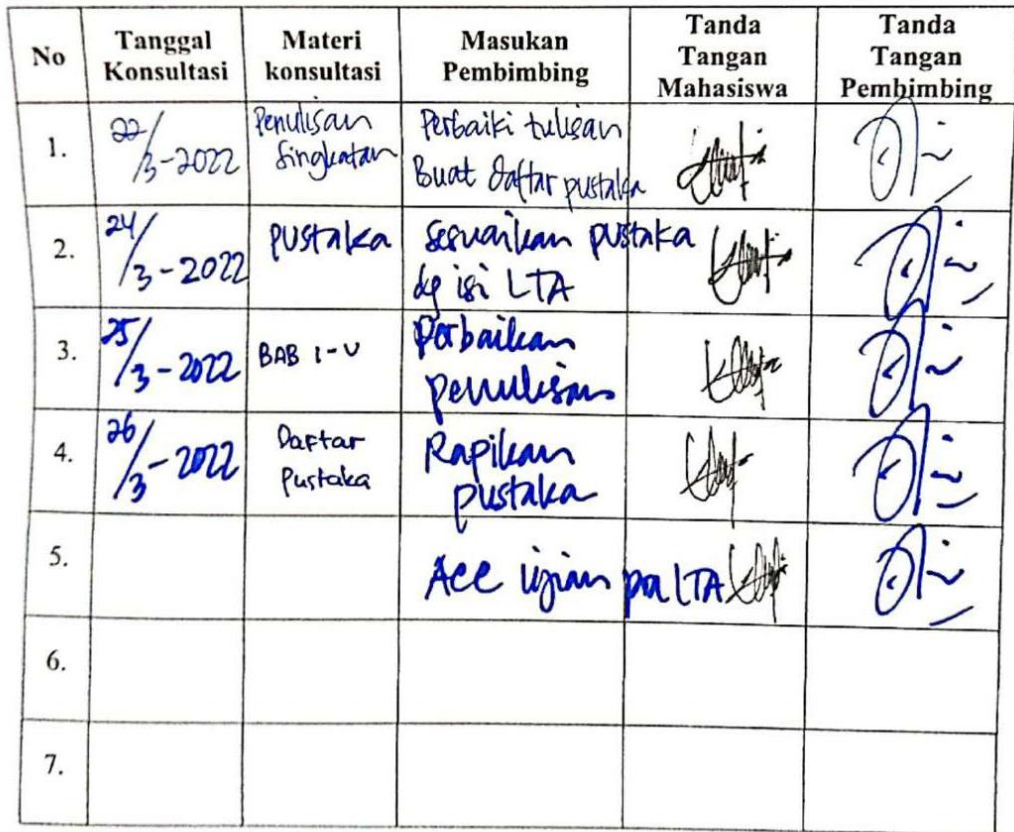 No Tanggal Konsultasi Materi konsultasi Masukan Pembimbing Tanda Tangan Mahasiswa Tanda Tangan Pembimbing
1. 22/3-2022 Penulisan Singkatan Perbaiki tulisan
Buat daftar pustaka
2. 24/3-2022 pustaka Sesuaikan pustaka
dg isi LTA
3. 25/3-2022 BAB I-V Perbaikan
penulisan
4. 26/3-2022 Daftar Pustaka Rapikan
pustaka
5. Acc ujian pra LTA
6.
7.